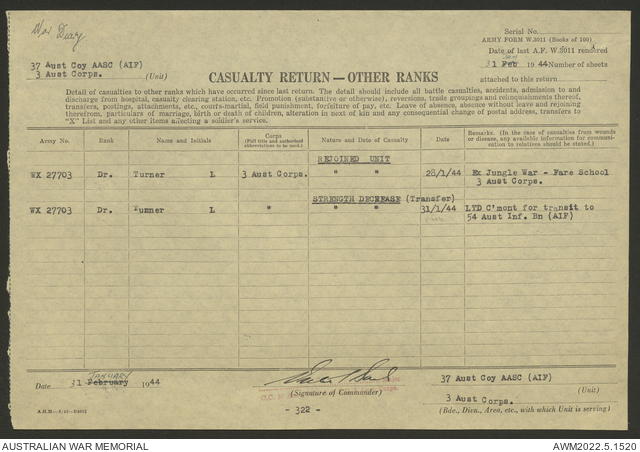 War Diary
Serial No.
ARMY FORM W.3011 (Books of 100)
Date of last A.F. W.3011 rendered
37 Aust Coy AASC (AIF)
3 Aust Corps. (Unit)
31 Feb 1944 Number of sheets
attached to this return
CASUALTY RETURN—OTHER RANKS
Detail of casualties to other ranks which have occurred since last return. The detail should include all battle casualties, accidents, admission to and
discharge from hospital, casualty clearing station, etc. Promotion (substantive or otherwise), reversions, trade groupings and relinquishments thereof,
transfers, postings, attachments, etc., courts-martial, field punishment, forfeiture of pay, etc. Leave of absence, absence without leave and rejoining
therefrom, particulars of marriage, birth or death of children, alteration in next of kin and any consequential change of postal address, transfers to
"X" List and any other items affecting a soldier's service.
Army No. Rank Name and Initials Corps (Full title and authorised abbreviations to be used.) Nature and Date of Casualty Date Remarks. (In the case of casualties from wounds or disease, any available information for communication to relatives should be stated.)
REJOINED UNIT
WX 27703 Dr. Turner L 3 Aust Corps. " " 28/1/44 Ex Jungle War - Fare School
3 Aust Corps.
STRENGTH DECREASE (Transfer)
WX 27703 Dr. Turner L " " " 31/1/44 LTD C'mont for transit to
54 Aust Inf. Bn (AIF)
JANUARY
Date 31 February 1944
37 Aust Coy AASC (AIF)
(Unit)
(Signature of Commander)
3 Aust Corps.
- 322 -
(Bde., Divn., Area, etc., with which Unit is serving)
AUSTRALIAN WAR MEMORIAL
AWM2022.5.1520